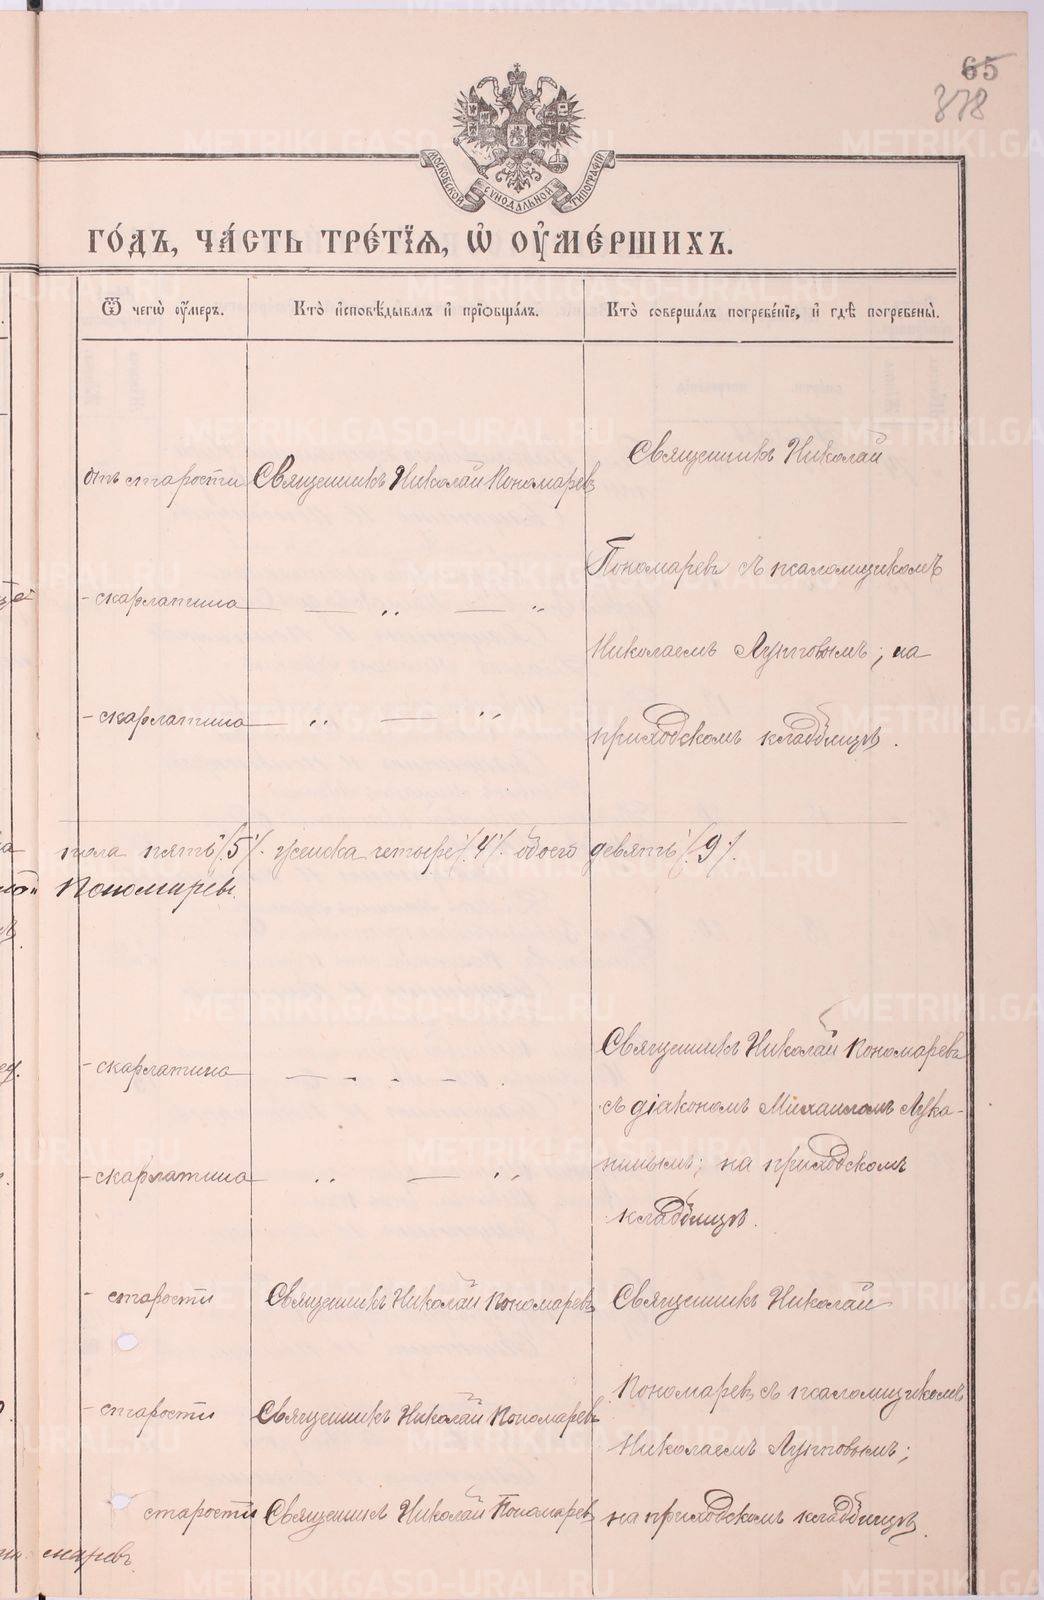 65
378
МОСКОВСКОЙ СѴНОДАЛЬНОЙ ТИПОГРАФІИ
ГО́ДЪ, ЧА́СТЬ ТРЕ́ТЇѦ, Ѡ҆ ОУ҆МЕ́РШИХЪ.
Ѿ чегѡ̀ оу҆́меръ.
Кто̀ и҆сповѣ́дывалъ и҆ прїѡбща́лъ.
Кто̀ соверша́лъ погребе́нїе, и҆ гдѣ̀ погребены̀.
отъ старости Священникъ Николай Пономаревъ
Священникъ Николай
Пономаревъ съ псаломщикомъ
Николаемъ Луптовымъ; на
приходскомъ кладбищѣ.
- скарлатина — — „ — „
- скарлатина — „ — „
пола пять /5/. женска четыре /4/. обоего девять /9/.
Пономаревъ.
- скарлатина — - . - .
Священникъ Николай Пономаревъ
съ діакономъ Михаиломъ Лука-
нинымъ; на приходскомъ
кладбищѣ.
- скарлатина — „ — „
- старости Священникъ Николай Пономаревъ
Священникъ Николай
Пономаревъ съ псаломщикомъ
Николаемъ Луптовымъ;
на приходскомъ кладбищѣ.
- старости Священникъ Николай Пономаревъ
старости Священникъ Николай Пономаревъ
маревъ.
METRIKI.GASO-URAL.RU